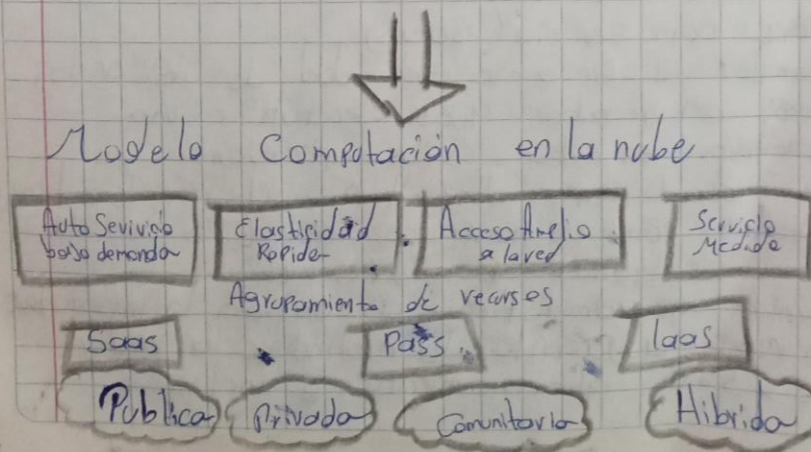 Modelo Computación en la nube
Auto Sevivicio bajo demanda
Elasticidad Rapidez
Acceso Amplio a la red
Servicio Medido
Agrupamiento de recursos
Saas
Pass
Iaas
Publica
Privada
Comunitaria
Hibrida